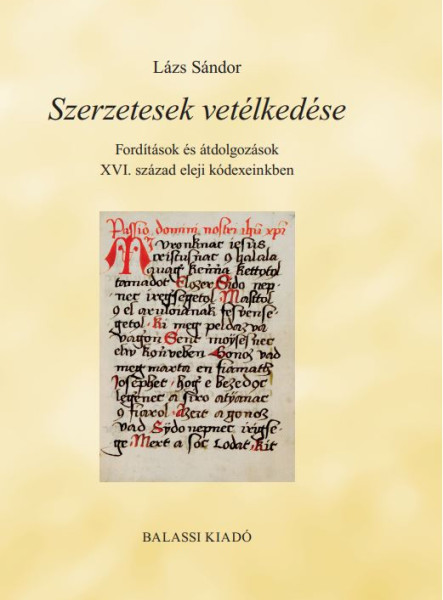 Lázs Sándor
Szerzetesek vetélkedése
Fordítások és átdolgozások
XVI. század eleji kódexeinkben
Passio domini nostri ihu xpi
M
vronknac iesus
cristusnac
halala
ket
tamadot Elozer Sido nep-
nec iregsegetol Masttol
el aruloianak
getol ki meg peldaz va
vagon Sent moyses nec
elv kon̈veben Gonoz vad
meg marta en fiamath
Josephet hog e bezedoc
legenec a siro atyanac
fiarol Azert a gonoz
vad Sydo nepnec irigse-
ge Mert a
BALASSI KIADÓ